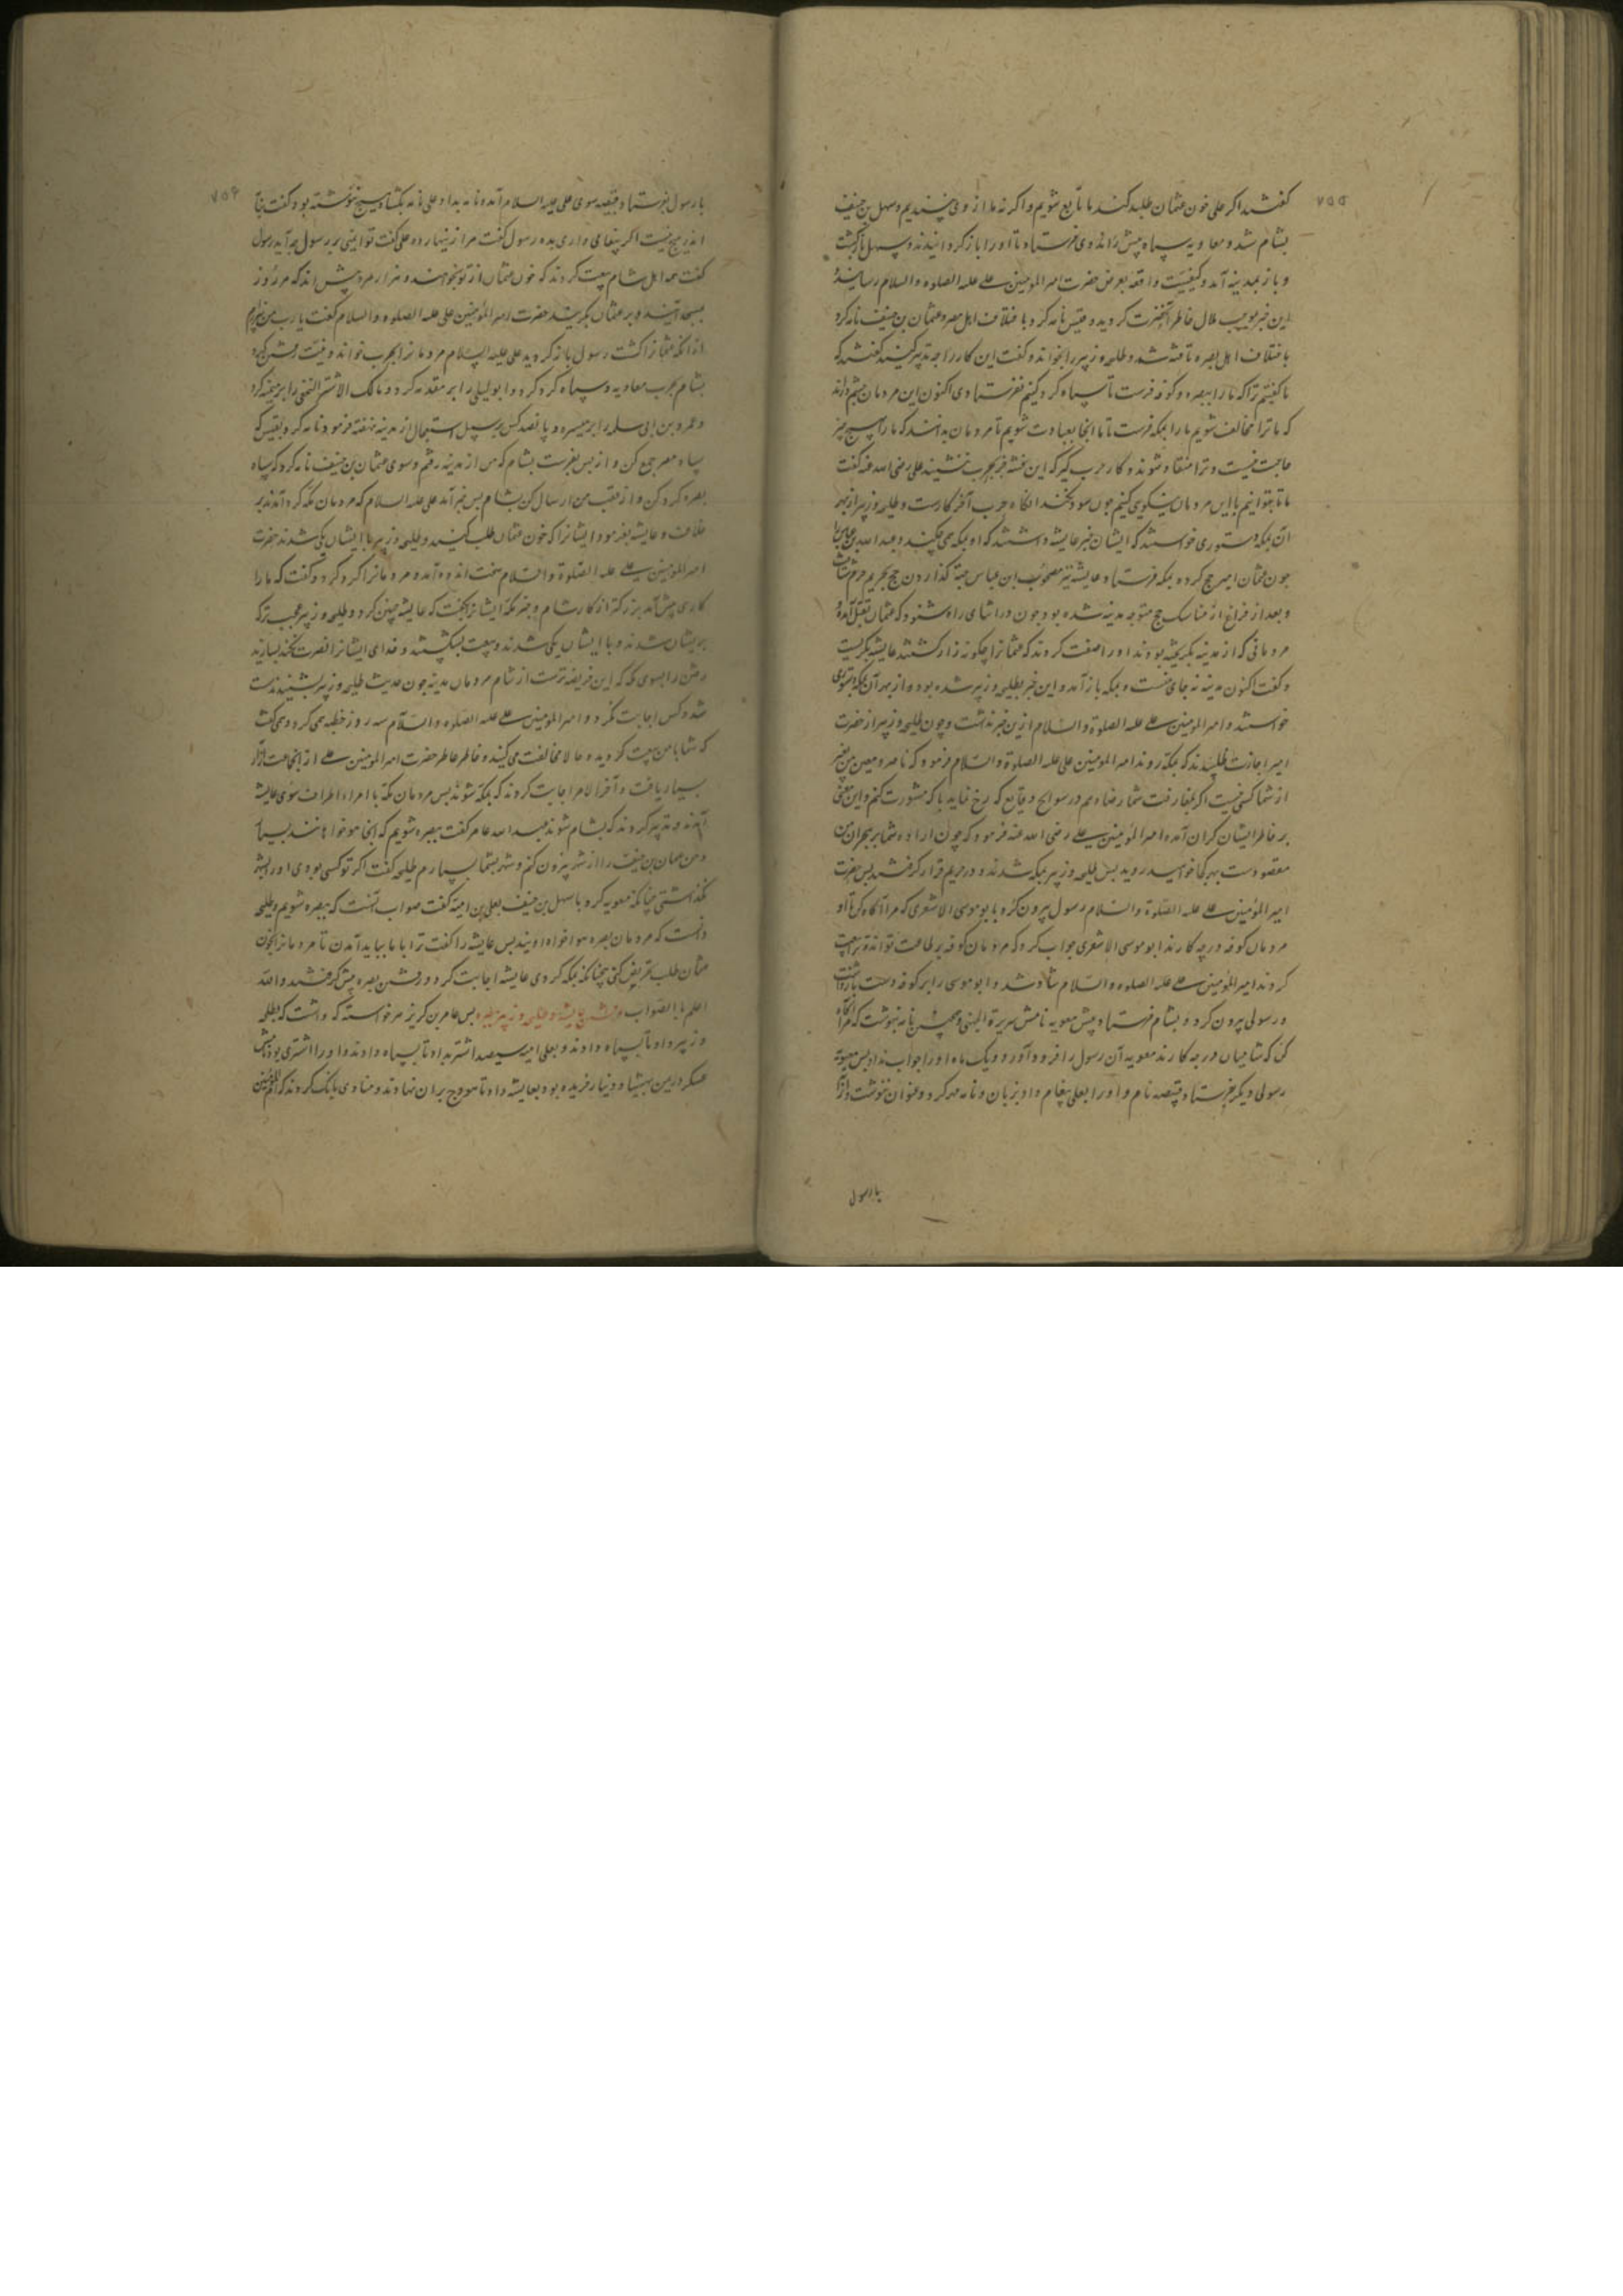 ۷۵۵
گفتند اگر علی خون عثمان طلب کند ما تابع شویم و اگر نه ما از وی نپسندیم و سهل بن حنیف
بشام شد و معاویه سپاه پیش وی فرستاد تا او را باز گردانیدند و سهل بازگشت
و باز بمدینه آمد و کیفیت واقعه بعرض حضرت امیر المؤمنین علی علیه الصلوة والسلام رسانید
این خبر موجب ملال خاطر آنحضرت گردید و قیس نامه کرد با ختلاف اهل مصر و عثمان بن حنیف نامه کرد
با ختلاف اهل بصره تافته شد و طلحه و زبیر را بخواند و گفت این کار را چه تدبیر کنید گفتند که
ما گفتیم ترا که ما را ببصره و کوفه فرست تا سپاه گرد کنیم نفرستادی اکنون این مردمان
که ما ترا مخالف شویم ما را بمکه فرست تا ما انجا بعبادت شویم تا مردمان بدانند که ما را هیچ چیز
حاجت نیست و ترا منقاد شوند و کار حرب گیر که این فتنه جز بحرب ننشیند علی رضی الله عنه گفت
ما تا بتوانیم با این مردمان نیکویی کنیم چون سود نکند انگاه حرب آخر کارست و طلحه و زبیر از بهر
آن بمکه دستوری خواستند که ایشان خبر عایشه داشتند که او بمکه می چکند و عبد الله بن عباس را
چون عثمان امیر حج کرده بمکه فرستاد و عایشه نیز مصحوب ابن عباس جهة گذاردن حج
و بعد از فراغ از مناسک حج متوجه مدینه شده بود چون در اثنای راه شنود که عثمان بقتل آمده
مردمانی که از مدینه بگریخته بودند او را صفت کردند که عثمانرا چگونه زار کشتند عایشه بگریست
و گفت اکنون مدینه نه جای منست و بمکه باز آمد و این خبر بطلحه و زبیر شده بود و از بهر آن بمکه دستوری
خواستند و امیر المؤمنین علی علیه الصلوة والسلام ازین خبر نداشت و چون طلحه و زبیر از حضرت
امیر اجازت طلبیدند که بمکه روند امیر المؤمنین علی علیه الصلوة والسلام فرمود که ناصر و معین من غیر
از شما کسی نیست اگر بمفارقت شما رضا دهم در سوانح و قایع که رخ نماید با که مشورت کنم و این معنی
بر خاطر ایشان گران آمد امیر المؤمنین علی رضی الله عنه فرمود که چون اراده شما بر هجران من
مقصودست بهر کجا خواهید روید پس طلحه و زبیر بمکه شدند و در حریم قرار گرفتند پس حضرت
امیر المؤمنین علی علیه الصلوة والسلام رسول بیرون کرد با بو موسی الاشعری که مرا آگاه کن تا او
مردمان کوفه در چه کارند ابو موسی الاشعری جواب کرد که مردمان کوفه بر طاعت تواند
کردند امیر المؤمنین علی علیه الصلوة والسلام شاد شد و ابو موسی را بر کوفه دست بازداشت
و رسولی بیرون کرد و بشام فرستاد پیش معویه نامش سبرة الجهنی و همچنین نامه نبوشت که مرا آگاه
کن که شامیان در چه کارند معویه آن رسول را فرود آورد و یک ماه او را جواب نداد پس معویة
رسولی دیگر بفرستاد قبیصه نام و او را بعلی پیغام داد بزبان و نامه مهر کرد و عنوان ننوشت و آنرا
با رسول
۷۵۶
با رسول بفرستاد قبیصه سوی علی علیه السلام آمد و نامه بداد علی نامه بگشاد هیچ ننوشته بود گفت
اندر هیچ نیست اگر پیغامی داری بده رسول گفت مرا زینهار ده علی گفت تو ایمنی بر رسول چه آید رسول
گفت همه اهل شام بیعت کردند که خون عثمان از تو بخواهند و هزار مرد بیش اند که هر روز
بمسجد آیند و بر عثمان بگریند حضرت امیر المؤمنین علی علیه الصلوة والسلام گفت یا رب من بیزارم
از انکه عثمانرا کشت رسول باز گردید علی علیه السلام مردمانرا بحرب خواند و نیت رفتن کرد
بشام بحرب معاویه و سپاه گرد کرد و ابو لیلی را بر مقدمه کرد و مالک الاشتر النخعی را بر میمنه کرد
و عمرو بن ابی سلمه را بر میسره و پانصد کس بر سبیل استعجال از مدینه نهفته فرمود و نامه کرد بقیس که
سپاه مصر جمع کن و از پس بفرست بشام که من از مدینه رفتم و سوی عثمان بن حنیف نامه کرد که سپاه
بصره گرد کن و از عقب من ارسال کن بشام پس خبر آمد علی علیه السلام که مردمان مکه گرد آمدند بر
خلاف و عایشه بفرمود ایشانرا که خون عثمان طلب کنید و طلحه و زبیر با ایشان یکی شدند حضرت
امیر المؤمنین علی علیه الصلوة والسلام سخت اندوه آمد و مردمانرا گرد کرد و گفت که ما را
کاری پیش آمد بزرگتر از کار شام و خبر مکه ایشانرا بگفت که عایشه چنین کرد و طلحه و زبیر عجب ترکه
بریشان شدند و با ایشان یکی شدند و بیعت بشکستند و خدای ایشانرا نصرت نکند بسازید
رفتن را بسوی مکه که این فریضه ترست از شام مردمان مدینه چون حدیث طلحه و زبیر بشنیدند
شد و کس اجابت نکرد و امیر المؤمنین علی علیه الصلوة والسلام سه روز خطبه می کرد و می گفت
که شما با من بیعت کردید و حالا مخالفت می کنید و خاطر عاطر حضرت امیر المؤمنین علی از انجماعت آزار
بسیار یافت و آخر الامر اجابت کردند که بمکه شوند پس مردمان مکه با امراء اطراف سوی عایشه
آمدند و تدبیر کردند که بشام شوند عبد الله عامر گفت ببصره شویم که انجا هوا خواهانند بسیار
و من عثمان بن حنیف را از شهر بیرون کنم و شهر بشما سپارم طلحه گفت اگر تو کسی بودی او را بشهر
نگذاشتی چنانکه معویه کرد با سهل بن حنیف یعلی بن امیه گفت صواب آنست که ببصره شویم و طلحه
دانست که مردمان بصره هوا خواه اویند پس عایشه را گفت ترا با ما بباید آمدن تا مردمانرا بخون
عثمان طلب تحریض کنی چنانکه بمکه کردی عایشه اجابت کرد و رفتن بصره پیش گرفتند والله
اعلم بالصواب رفتن عایشه و طلحه و زبیر ببصره پس عامر بن کریز هر خواسته که داشت که بطلحه
و زبیر داد تا بسپاه دادند و یعلی امیه سیصد اشتر بداد تا بسپاه دادند و او را اشتری بود نامش
عسکر در یمن بهشتاد دینار خریده بود بعایشه داد تا هودج بران نهادند و منادی بانگ کردند که ام المؤمنین